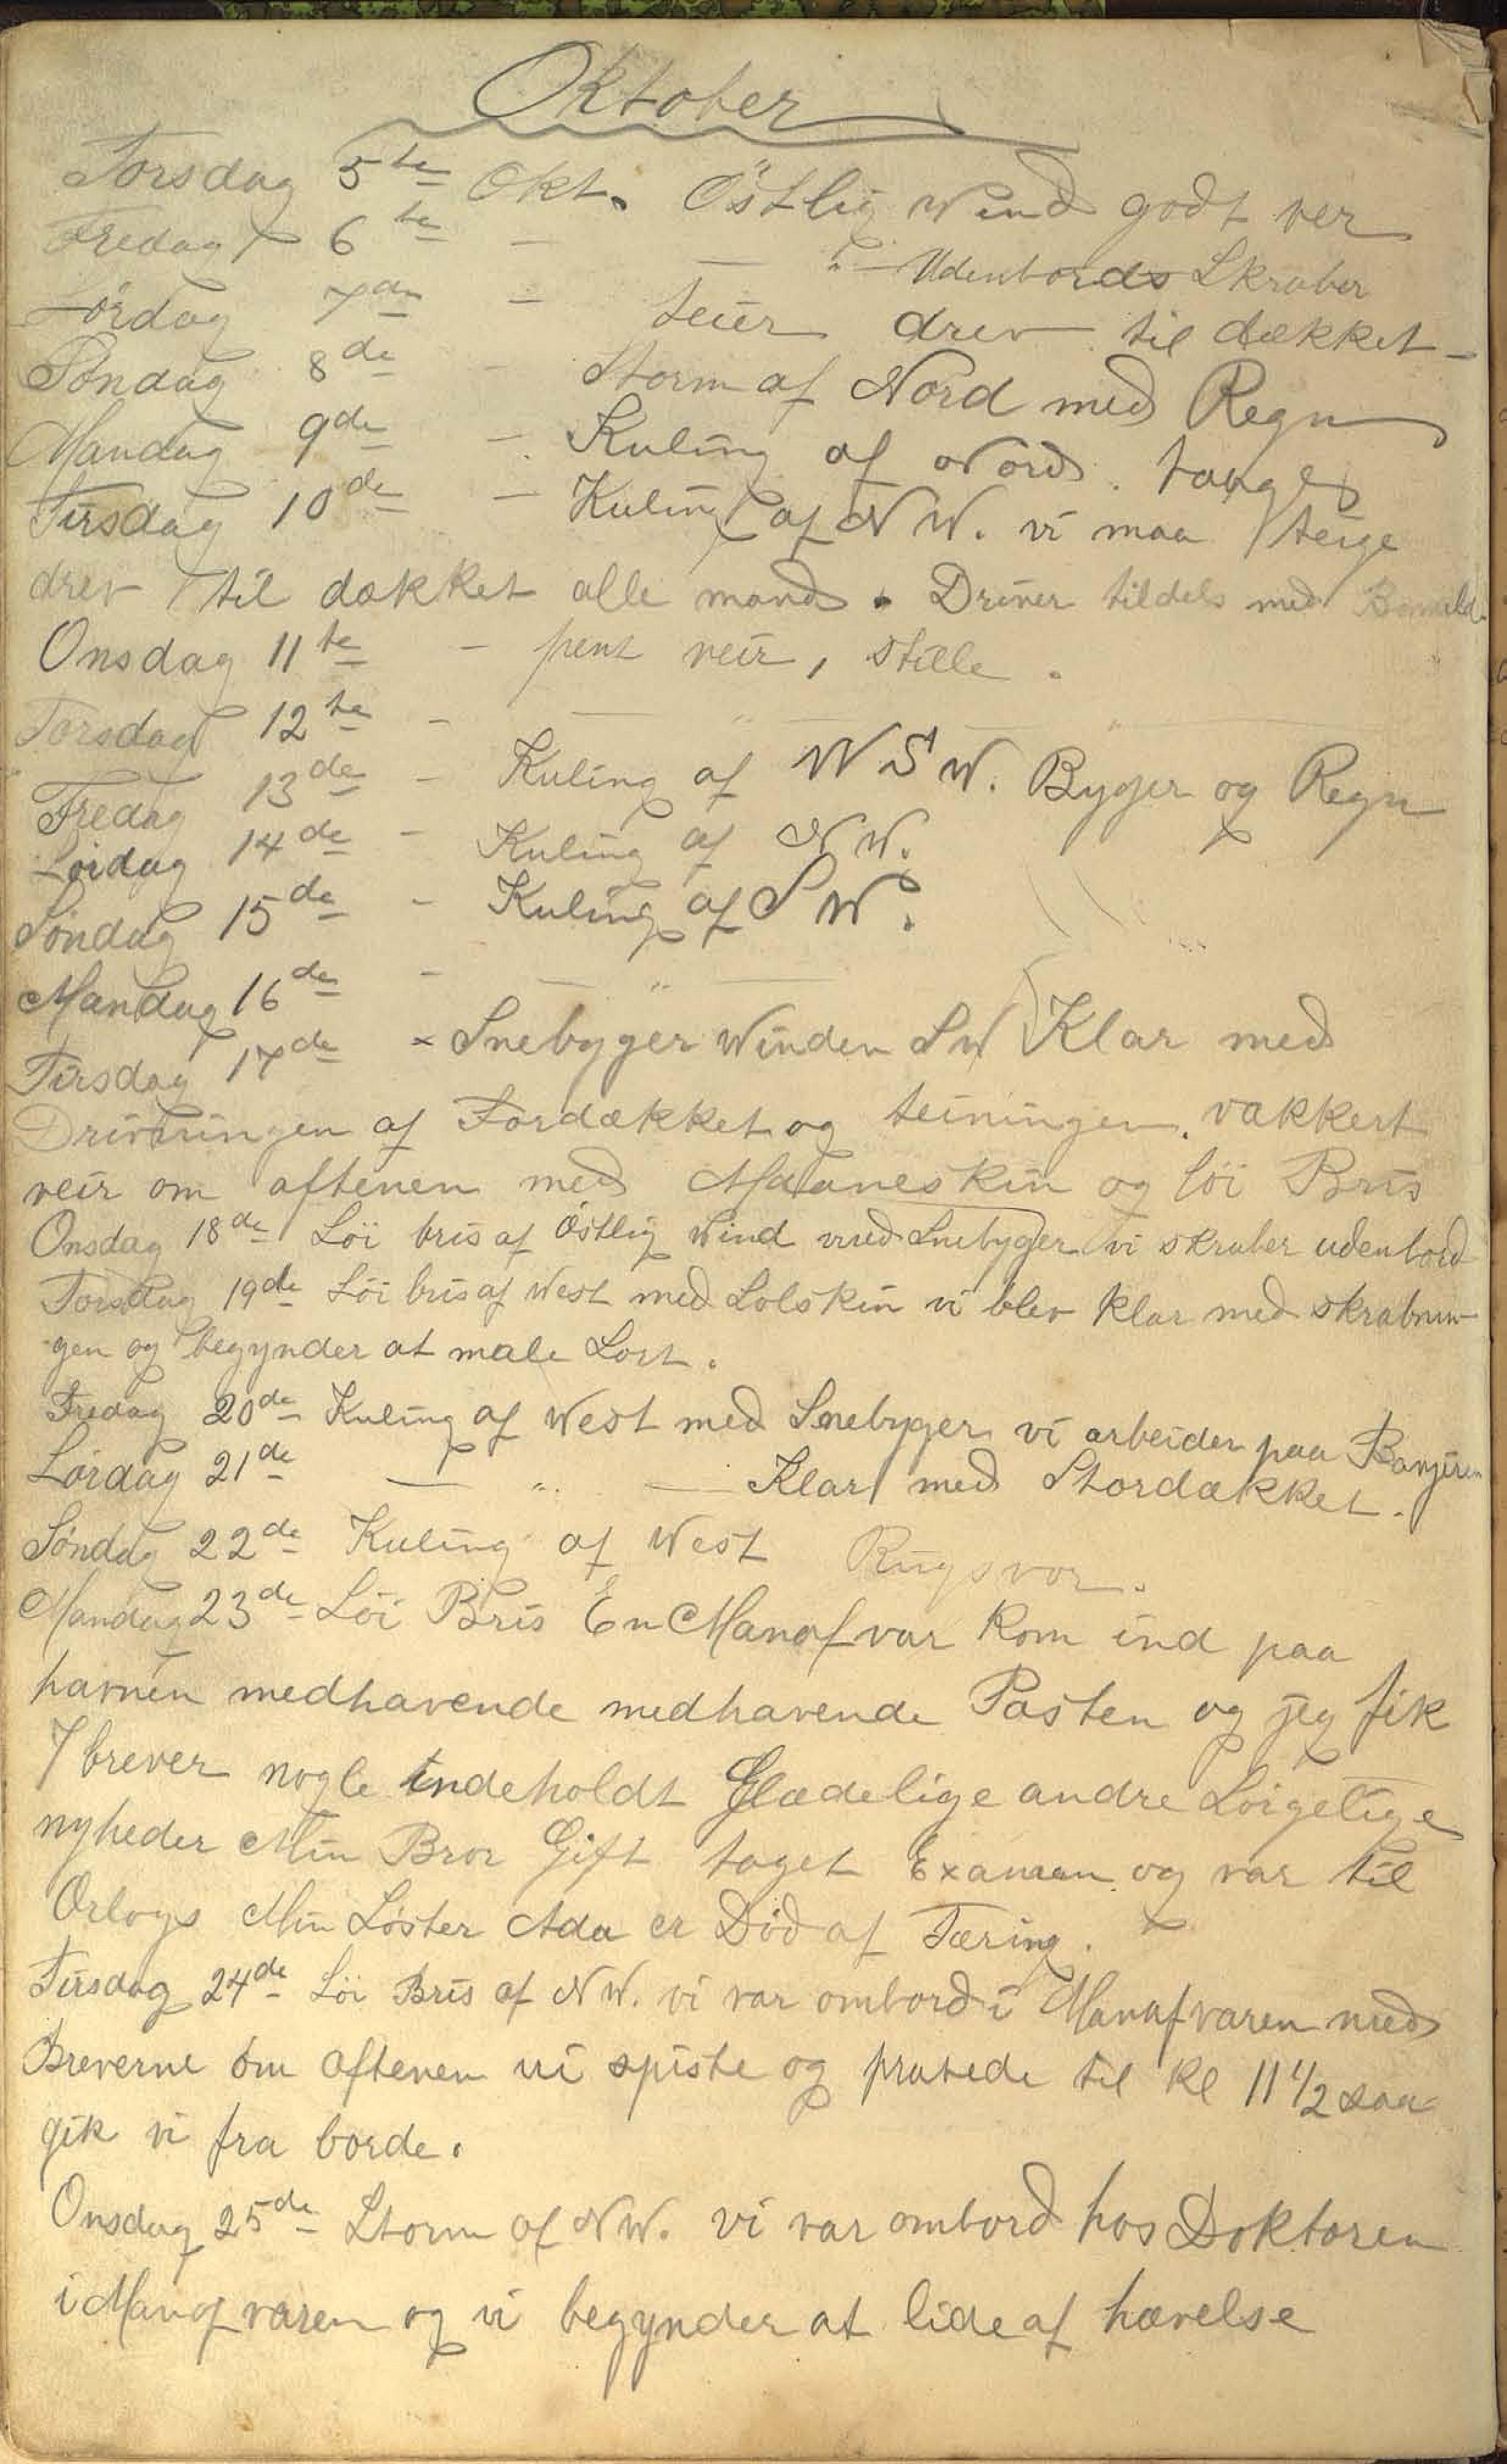 Oktober
Torsdag 5te Okt. Östlig Wind godt ver
Fredag 6te — — " — Udenbords Skraber
Lördag 7de — teier drev til dækket
Söndag 8de - Storm af Nord med Regn
Mandag 9de - Kuling af Nord.
Tirsdag 10de - Kuling af N W. vi maa teige
drev til dækket alle mand. Driver tildels med
Onsdag 11te - pent veir, stille.
Torsdag 12te - — " — "
Fredag 13de - Kuling af W S W. Byger og Regn
Löidag 14de - Kuling af N W.
Söndag 15de - Kuling af S W.
Mandag 16de - — " —
Tirsdag 17de - Snebyger Winden S W Klar med
Drivningen af Fordækket og teiningen. vakkert
veir om aftenen med Maaneskin og löi Bris
Onsdag 18de Löi bris af Östlig Wind med Snebyger vi skraber udenbord
Torsdag 19de Löi bris af West med Solskin vi blev klar med skrabnin-
gen og begynder at male Sort.
Fredag 20de Kuling af West med Snebyger vi arbeider paa Banjeren
Lördag 21de — " — Klar med Stordækket.
Söndag 22de Kuling af West
Mandag 23de Löi Bris En Manofvar kom ind paa
havnen medhavende medhavende Posten og jeg fik
7 brever nogle indeholdt Glædelige andre Sörgelige
nyheder Min Bror Gift taget Examen og var til
Orlogs Min Söster Ada er Död af Tæring.
Tirsdag 24de Löi Bris af N W. vi var ombord i Manofvaren med
Breverne om aftenen vi spiste og pratede til Kl 11 1/2 saa
gik vi fra borde.
Onsdag 25de Storm af N W. vi var ombord hos Doktoren
i Manofvaren og vi begynder at lide af hævelse